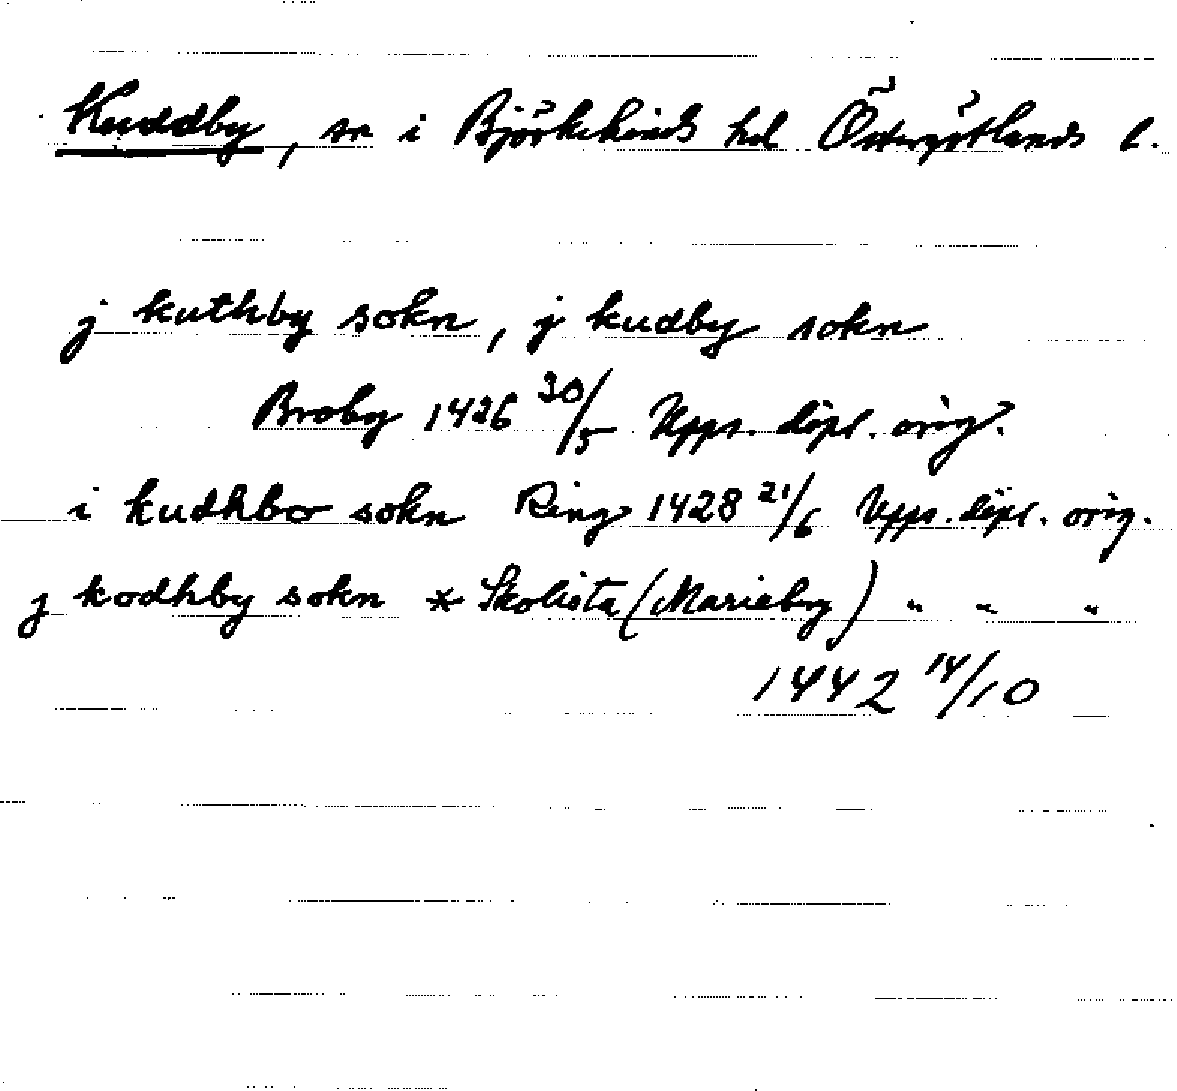 Kuddby, sn i Björkekinds hd Östergötlands l.
j kuthby sokn, j kudby sokn
Broby 1426 30/5 Upps. dipl. orig?
i kudhbo sokn Ring 1428 21/6 Upps. dipl. orig.
j kodhby sokn * Skolista (Marieby) " " "
1442 14/10